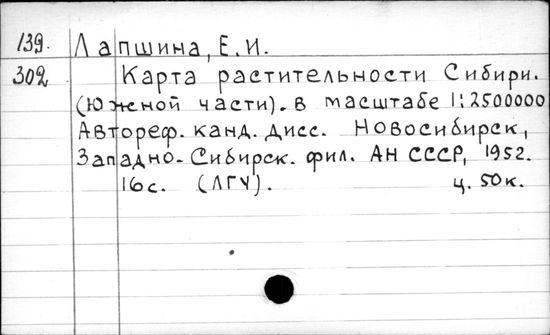 139. Лапшина, Е.И.
302 Карта растительности Сибири.
(Южной части). в масштабе 1:2500000
Автореф. канд. дисс. Новосибирск,
Западно-Сибирск. фил. АН СССР, 1952.
16с. (ЛГУ). ц. 50к.